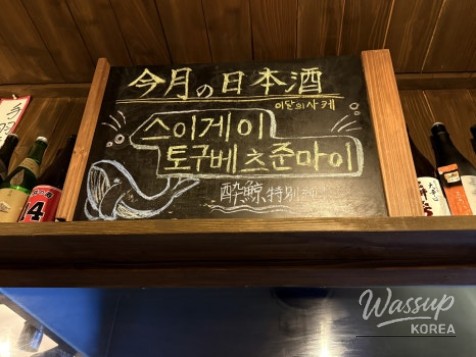 今月の日本酒
이달의 사케
스이게이
토쿠베츠준마이
酔鯨特別
4
Wassup
KOREA